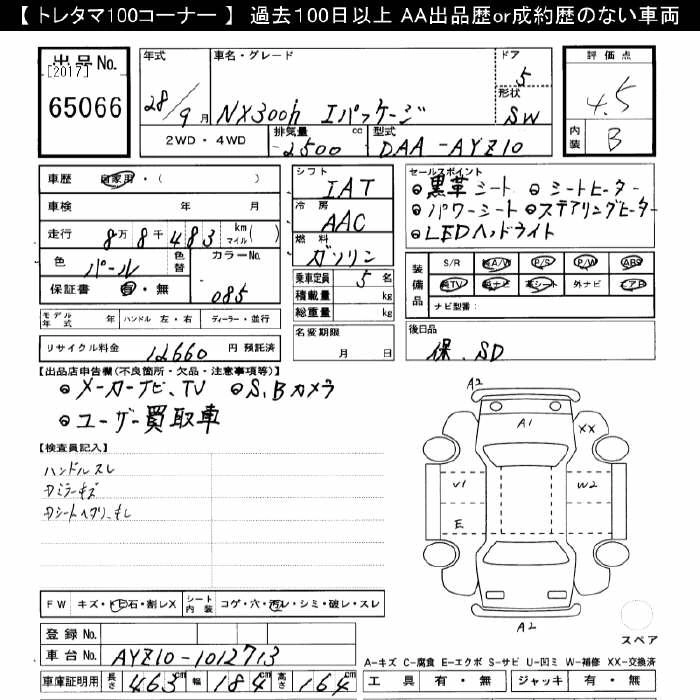 【 トレタマ100コーナー 】 過去100日以上 AA出品歴or成約歴のない車両
出品No.
[2017]
65066
年式
28/9月
車名・グレード
NX300h Iパッケージ
ドア
5
形状
SW
評価点
4.5
内装
B
2WD・4WD
排気量
2500 cc
型式
DAA-AYZ10
車歴 自家用・( )
車検 年 月
走行 8万8千483 km マイル ( )
色 パール 色替 カラーNo. 085
保証書 有・無
モデル年式 年 ハンドル 左・右 ディーラー・並行
リサイクル料金 12660 円 預託済
シフト
IAT
冷房
AAC
燃料
ガソリン
乗車定員 5 名
積載量 kg
総重量 kg
名変期限
月 日
セールスポイント
黒革シート シートヒーター
パワーシート ステアリングヒーター
LEDヘッドライト
装備品
S/R 純A/W P/S P/W ABS
純TV 純ナビ 革シート 外ナビ エアB
ナビ型番:
後日品
保、SD
【出品店申告欄(不良箇所・欠品・注意事項等)】
メーカーナビ、TV S,Bカメラ
ユーザー買取車
【検査員記入】
ハンドルスレ
A2
A1
XX
V1
W2
E
A2
スペア
FW キズ・トビ石・割レX シート内装 コゲ・穴・汚レ・シミ・破レ・スレ
登録No.
車台No. AYZ10-1012713
車庫証明用 長さ 463 cm 幅 184 cm 高さ 164 cm
A-キズ C-腐食 E-エクボ S-サビ U-凹ミ W-補修 XX-交換済
工具 有・無 ジャッキ 有・無